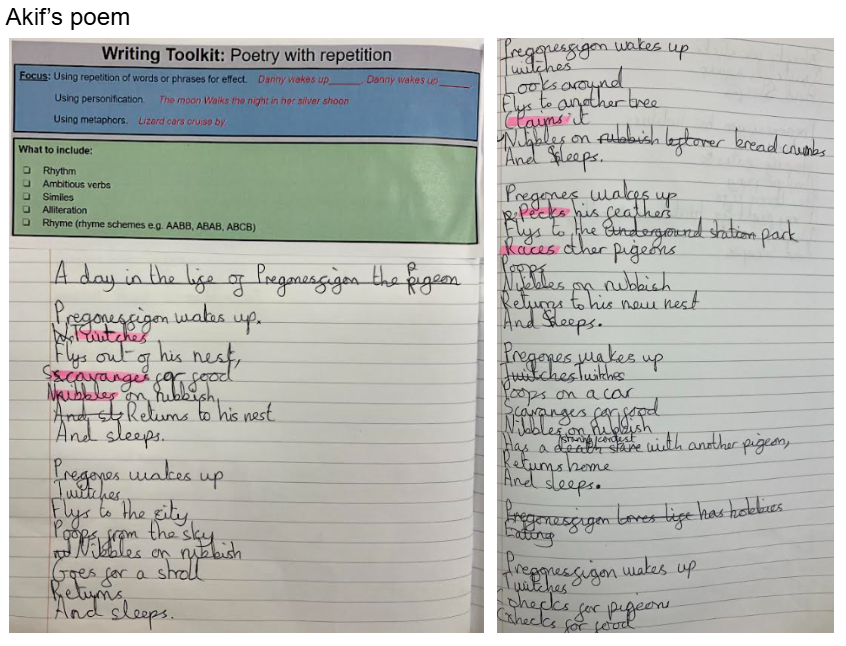 Akif's poem
Writing Toolkit: Poetry with repetition
Focus: Using repetition of words or phrases for effect. Danny wakes up______, Danny wakes up ______
Using personification. The moon Walks the night in her silver shoon
Using metaphors. Lizard cars cruise by
What to include:
❑ Rhythm
❑ Ambitious verbs
❑ Similes
❑ Alliteration
❑ Rhyme (rhyme schemes e.g. AABB, ABAB, ABCB)
A day in the life of Pregonessigon the Pigeon
Pregonessigon wakes up.
Twitches
Flys out of his nest,
Scavanges for food
Nibbles on rubbish,
Returns to his nest
And sleeps.
Pregones wakes up
Twitches
Flys to the city
Poops from the sky
Nibbles on rubbish
Goes for a stroll
Returns
And sleeps.
Pregonessigon wakes up
Twitches
Looks around
Flys to another tree
Claims it
Nibbles on rubbish leftover bread crumbs
And Sleeps.
Pregones wakes up
Pecks his feathers
Flys to the underground station park
Races other pigeons
Poops
Nibbles on rubbish
Returns to his new nest
And Sleeps.
Pregones wakes up
Twitches Twitches
Poops on a car
Scavanges for food
Nibbles on rubbish
Has a death stare staring contest with another pigeon,
Returns home
And sleeps.
Pregonessigon Loves life has hobbies
Eating
Pregonessigon wakes up
Twitches
Checks for pigeons
Checks for food